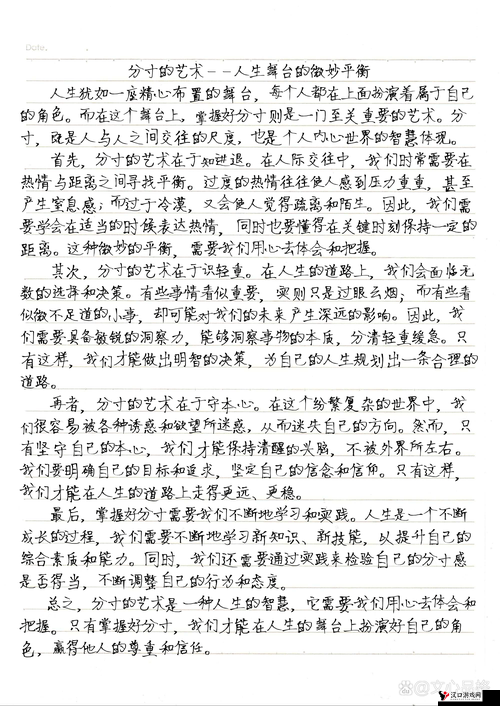 Date.
分寸的艺术--人生舞台的微妙平衡
人生犹如一座精心布置的舞台，每个人都在上面扮演着属于自己
的角色。而在这个舞台上，掌握好分寸则是一门至关重要的艺术。分
寸，既是人与人之间交往的尺度，也是个人内心世界的智慧体现。
首先，分寸的艺术在于知进退。在人际交往中，我们时常需要在
热情与距离之间寻找平衡。过度的热情往往使人感到压力重重，甚至
产生窒息感；而过于冷漠，又会使人觉得疏离和陌生。因此，我们需
要学会在适当的时候表达热情，同时也要懂得在关键时刻保持一定的
距离。这种微妙的平衡，需要我们用心去体会和把握。
其次，分寸的艺术在于识轻重。在人生的道路上，我们会面临无
数的选择和决策。有些事情看似重要，实则只是过眼云烟；而有些看
似微不足道的小事，却可能对我们的未来产生深远的影响。因此，我
们需要具备敏锐的洞察力，能够洞察事物的本质，分清轻重缓急。只
有这样，我们才能做出明智的决策，为自己的人生规划出一条合理的
道路。
再者，分寸的艺术在于守本心。在这个纷繁复杂的世界中，我
们很容易被各种诱惑和欲望所迷惑，从而迷失自己的方向。然而，只
有坚守自己的本心，我们才能保持清醒的头脑，不被外界所左右。
我们要明确自己的目标和追求，坚定自己的信念和信仰。只有这样，
我们才能在人生的道路上走得更远、更稳。
最后，掌握好分寸需要我们不断地学习和实践。人生是一个不断
成长的过程，我们需要不断地学习新知识、新技能，以提升自己的
综合素质和能力。同时，我们还需要通过实践来检验自己的分寸感
是否得当，不断调整自己的行为和态度。
总之，分寸的艺术是一种人生的智慧，它需要我们用心去体会和
把握。只有掌握好分寸，我们才能在人生的舞台上扮演好自己的角
色，赢得他人的尊重和信任。
汉口游戏网